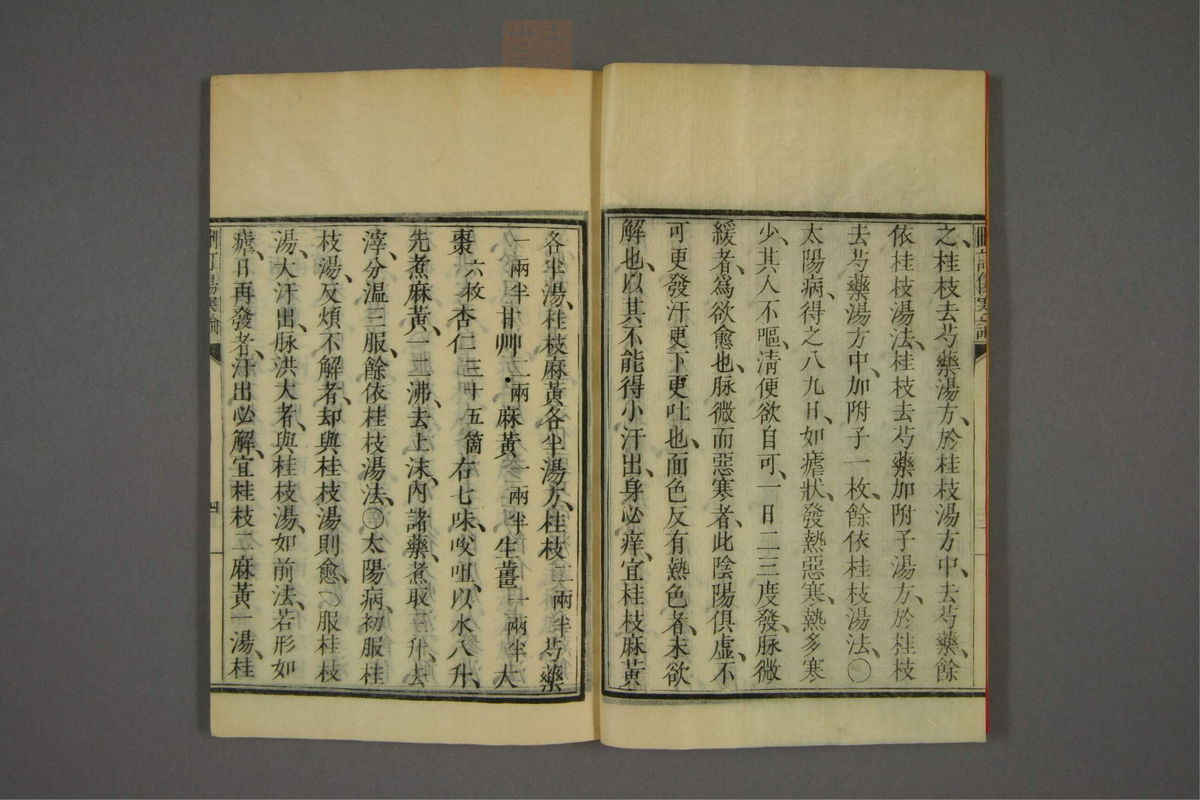 之、桂枝去芍藥湯方、於桂枝湯方中、去芍藥、餘
依桂枝湯法、桂枝去芍藥加附子湯方、於桂枝
去芍藥湯方中、加附子一枚、餘依桂枝湯法、〇
太陽病、得之八九日、如瘧狀、發熱惡寒、熱多寒
少、其人不嘔、淸便欲自可、一日二三度發、脉微
緩者、爲欲愈也、脉微而惡寒者、此陰陽俱虛、不
可更發汗更下更吐也、面色反有熱色者、未欲
解也、以其不能得小汗出、身必痒、宜桂枝麻黃
各半湯、桂枝麻黃各半湯方、桂枝一兩半芍藥
一兩半甘艸一兩麻黃一兩半生薑一兩半大
棗六枚杏仁三十五箇右七味、㕮咀、以水八升、
先煮麻黃一二沸、去上沫、內諸藥、煮取三升、去
滓、分溫三服、餘依桂枝湯法、〇太陽病、初服桂
枝湯、反煩不解者、却與桂枝湯則愈、〇服桂枝
湯、大汗出、脉洪大者、與桂枝湯、如前法、若形如
瘧、日再發者、汗出必解、宜桂枝二麻黃一湯、桂
四